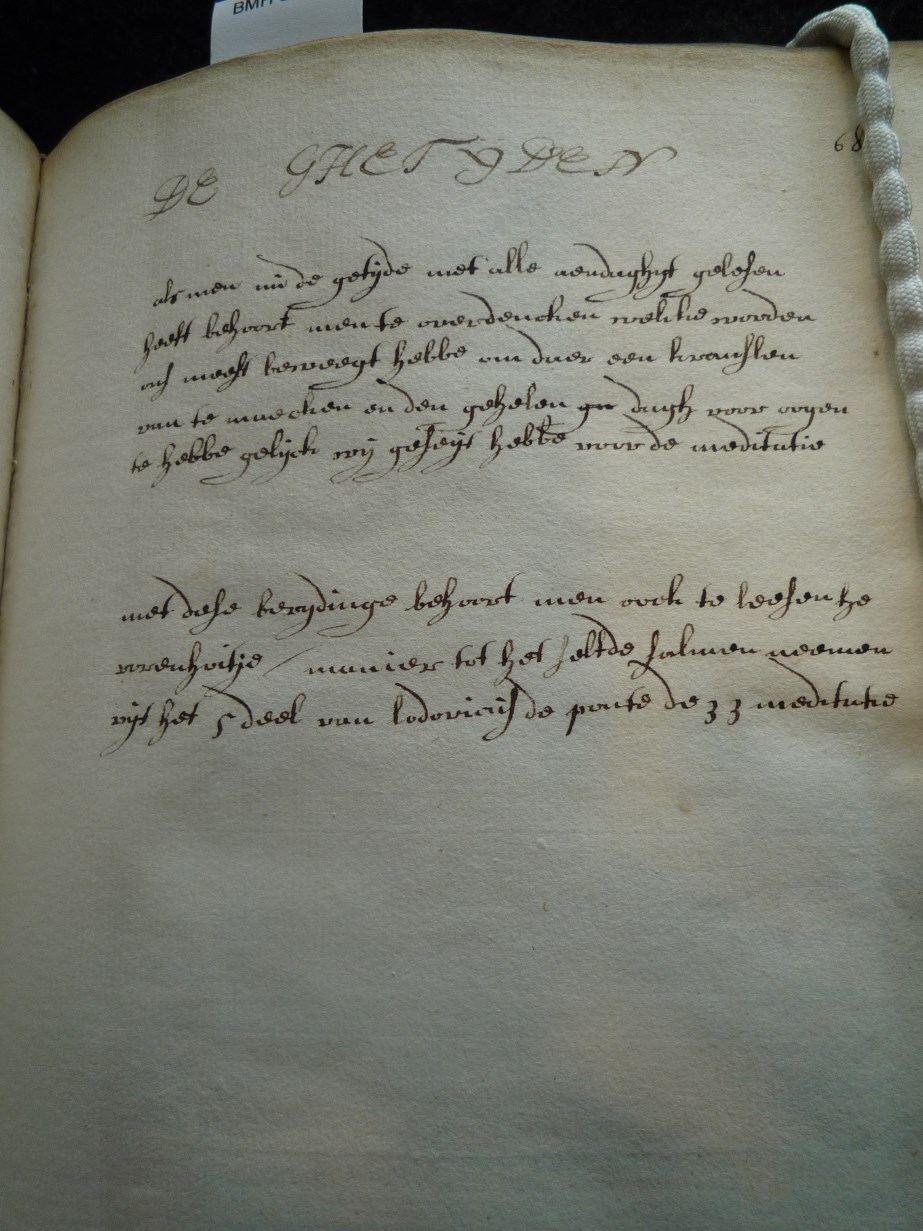 BMH
68
DE GHETYDEN
als men nu de getyde met alle aendaght gelesen
heeft behoort men te overdencken welcke woorden
ons meest beweegt hebbe om daer een kranslen
van te maecken en den gehelen dagh voor oogen
te hebbe gelyck wy geseyt hebbe voor de meditatie
met dese bereydinge behoort men oock te leesen he
rosenhoitje / manier tot het selfde salmen neemen
uyt het 5 deel van lodovicus de ponte de 33 meditatie